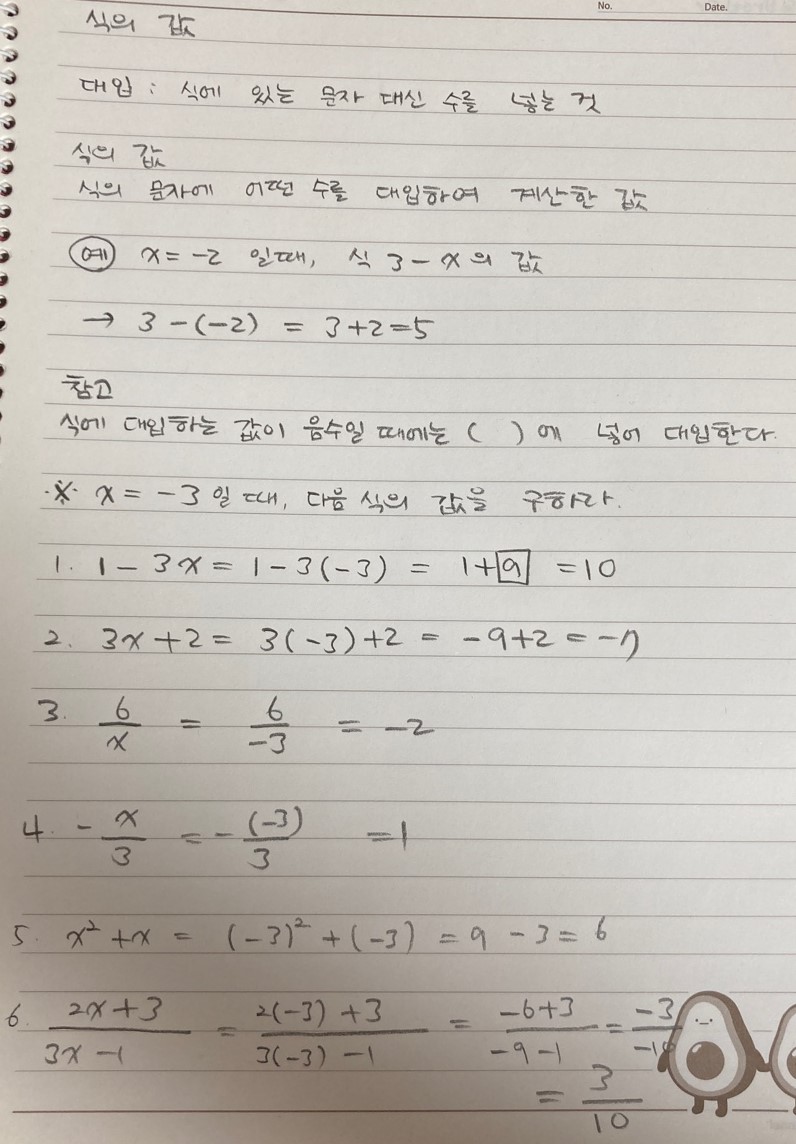 No. Date.
식의 값
대입 : 식에 있는 문자 대신 수를 넣는 것
식의 값
식의 문자에 어떤 수를 대입하여 계산한 값
예 x = -2 일때, 식 3 - x의 값
→ 3 - (-2) = 3+2=5
참고
식에 대입하는 값이 음수일 때에는 ( ) 에 넣어 대입한다.
※ x = -3 일 때, 다음 식의 값을 구하라.
1. 1 - 3x = 1 - 3(-3) = 1+9 = 10
2. 3x + 2 = 3(-3)+2 = -9+2 = -7
3. 6/x = 6/-3 = -2
4. - x/3 = - (-3)/3 = 1
5. x² + x = (-3)² + (-3) = 9 - 3 = 6
6. 2x+3/3x-1 = 2(-3)+3/3(-3)-1 = -6+3/-9-1 = -3/-10
= 3/10